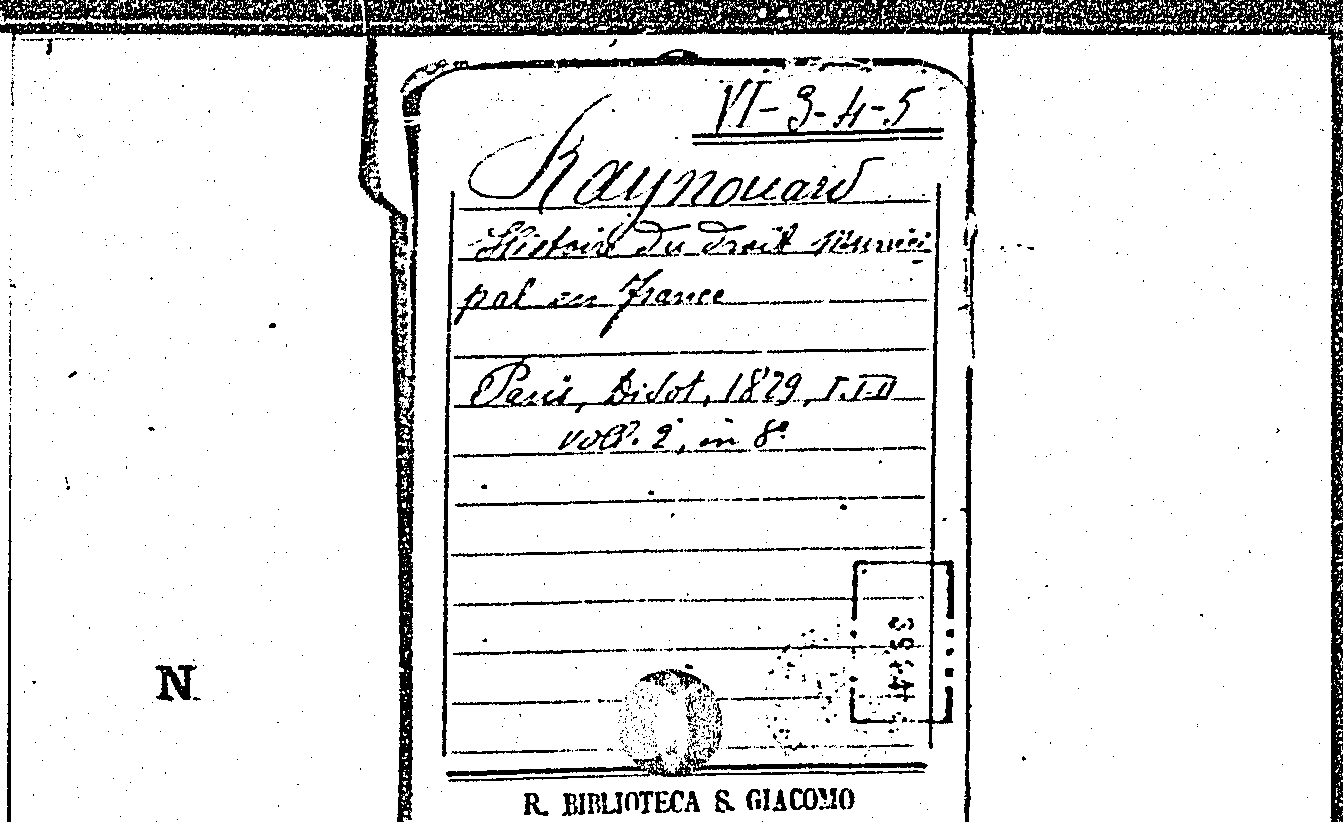 VI-3-4-5
Raynouard
Histoire du droit Munici
pal en France
Paris, Didot, 1829, T.I-II
voll. 2, in 8º
N
R. BIBLIOTECA S. GIACOMO